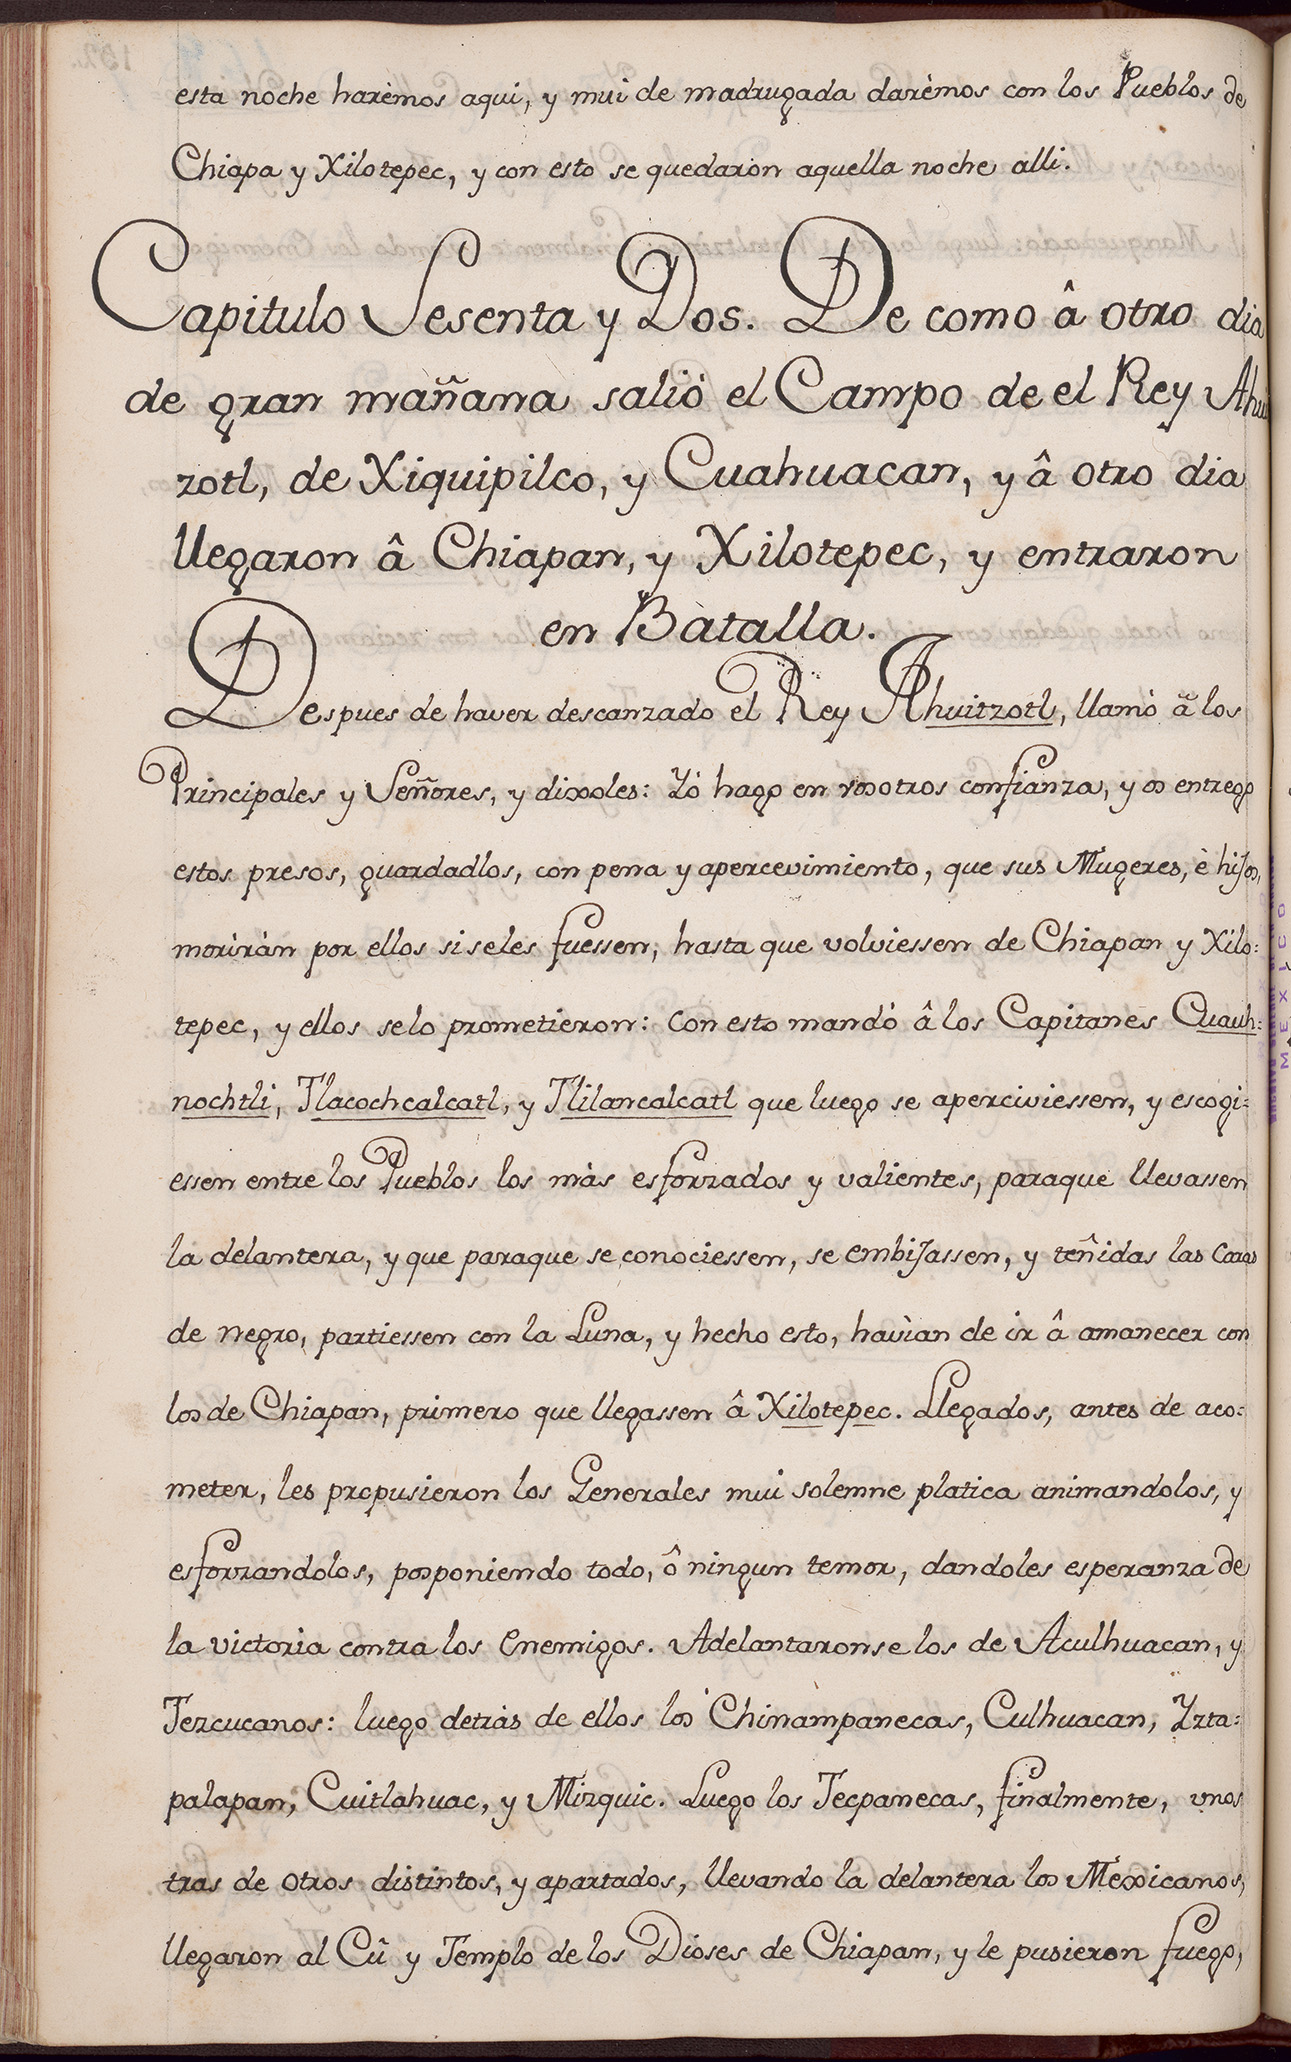 esta noche harèmos aqui, y mui de madrugada darèmos con los Pueblos de
Chiapa y Xilotepec, y con esto se quedaron aquella noche alli.
Capitulo Sesenta y Dos. De como â otro dia
de gran mañana salió el Campo de el Rey Ahui
zotl, de Xiquipilco, y Cuahuacan, y â otro dia
llegaron â Chiapan, y Xilotepec, y entraron
en Batalla.
Despues de haver descanzado el Rey Ahuitzotl, llamó â los
Principales y Señores, y dixoles: Yó hago en vosotros confianza, y os entrego
estos presos, guardadlos, con pena y apercevimiento, que sus Mugeres, è hijos,
morirán por ellos si seles fuessen, hasta que volviessen de Chiapan y Xilo:
tepec, y ellos selo prometieron: con esto mandó â los Capitanes Cuauh:
nochtli, Tlacochcalcatl, y Tlilancalcatl que luego se aperciviessen, y escogi=
essen entre los Pueblos los màs esforzados y valientes, paraque llevassen
la delantera, y que paraque se conociessen, se embijassen, y teñidas las Caras
de negro, partiessen con la Luna, y hecho esto, havian de ir â amanecer con
los de Chiapan, primero que llegassen â Xilotepec. Llegados, antes de aco:
meter, les propusieron los Generales mui solemne platica animandolos, y
esforzandolos, posponiendo todo, ô ningun temor, dandoles esperanza de
la victoria contra los Enemigos. Adelantaronse los de Aculhuacan, y
Tezcucanos: luego detràs de ellos los Chinampanecas, Culhuacan, Yzta:
palapan, Cuitlahuac, y Mizquic. Luego los Tecpanecas, finalmente, unos
tras de otros distintos, y apartados, llevando la delantera los Mexicanos,
llegaron al Cû y Templo de los Dioses de Chiapan, y le pusieron fuego,
MEXICO